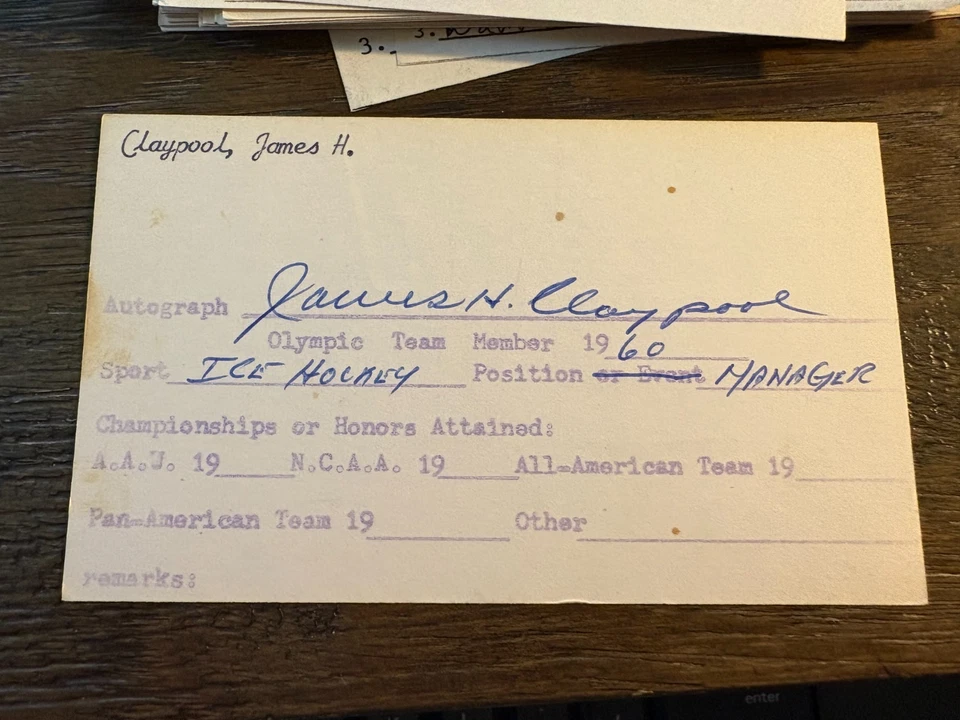 3.
3.
Claypool, James H.
Autograph James H. Claypool
Olympic Team Member 1960
Sport ICE HOCKEY Position or Event MANAGER
Championships or Honors Attained:
A.A.U. 19 N.C.A.A. 19 All-American Team 19
Pan-American Team 19 Other
remarks:
enter